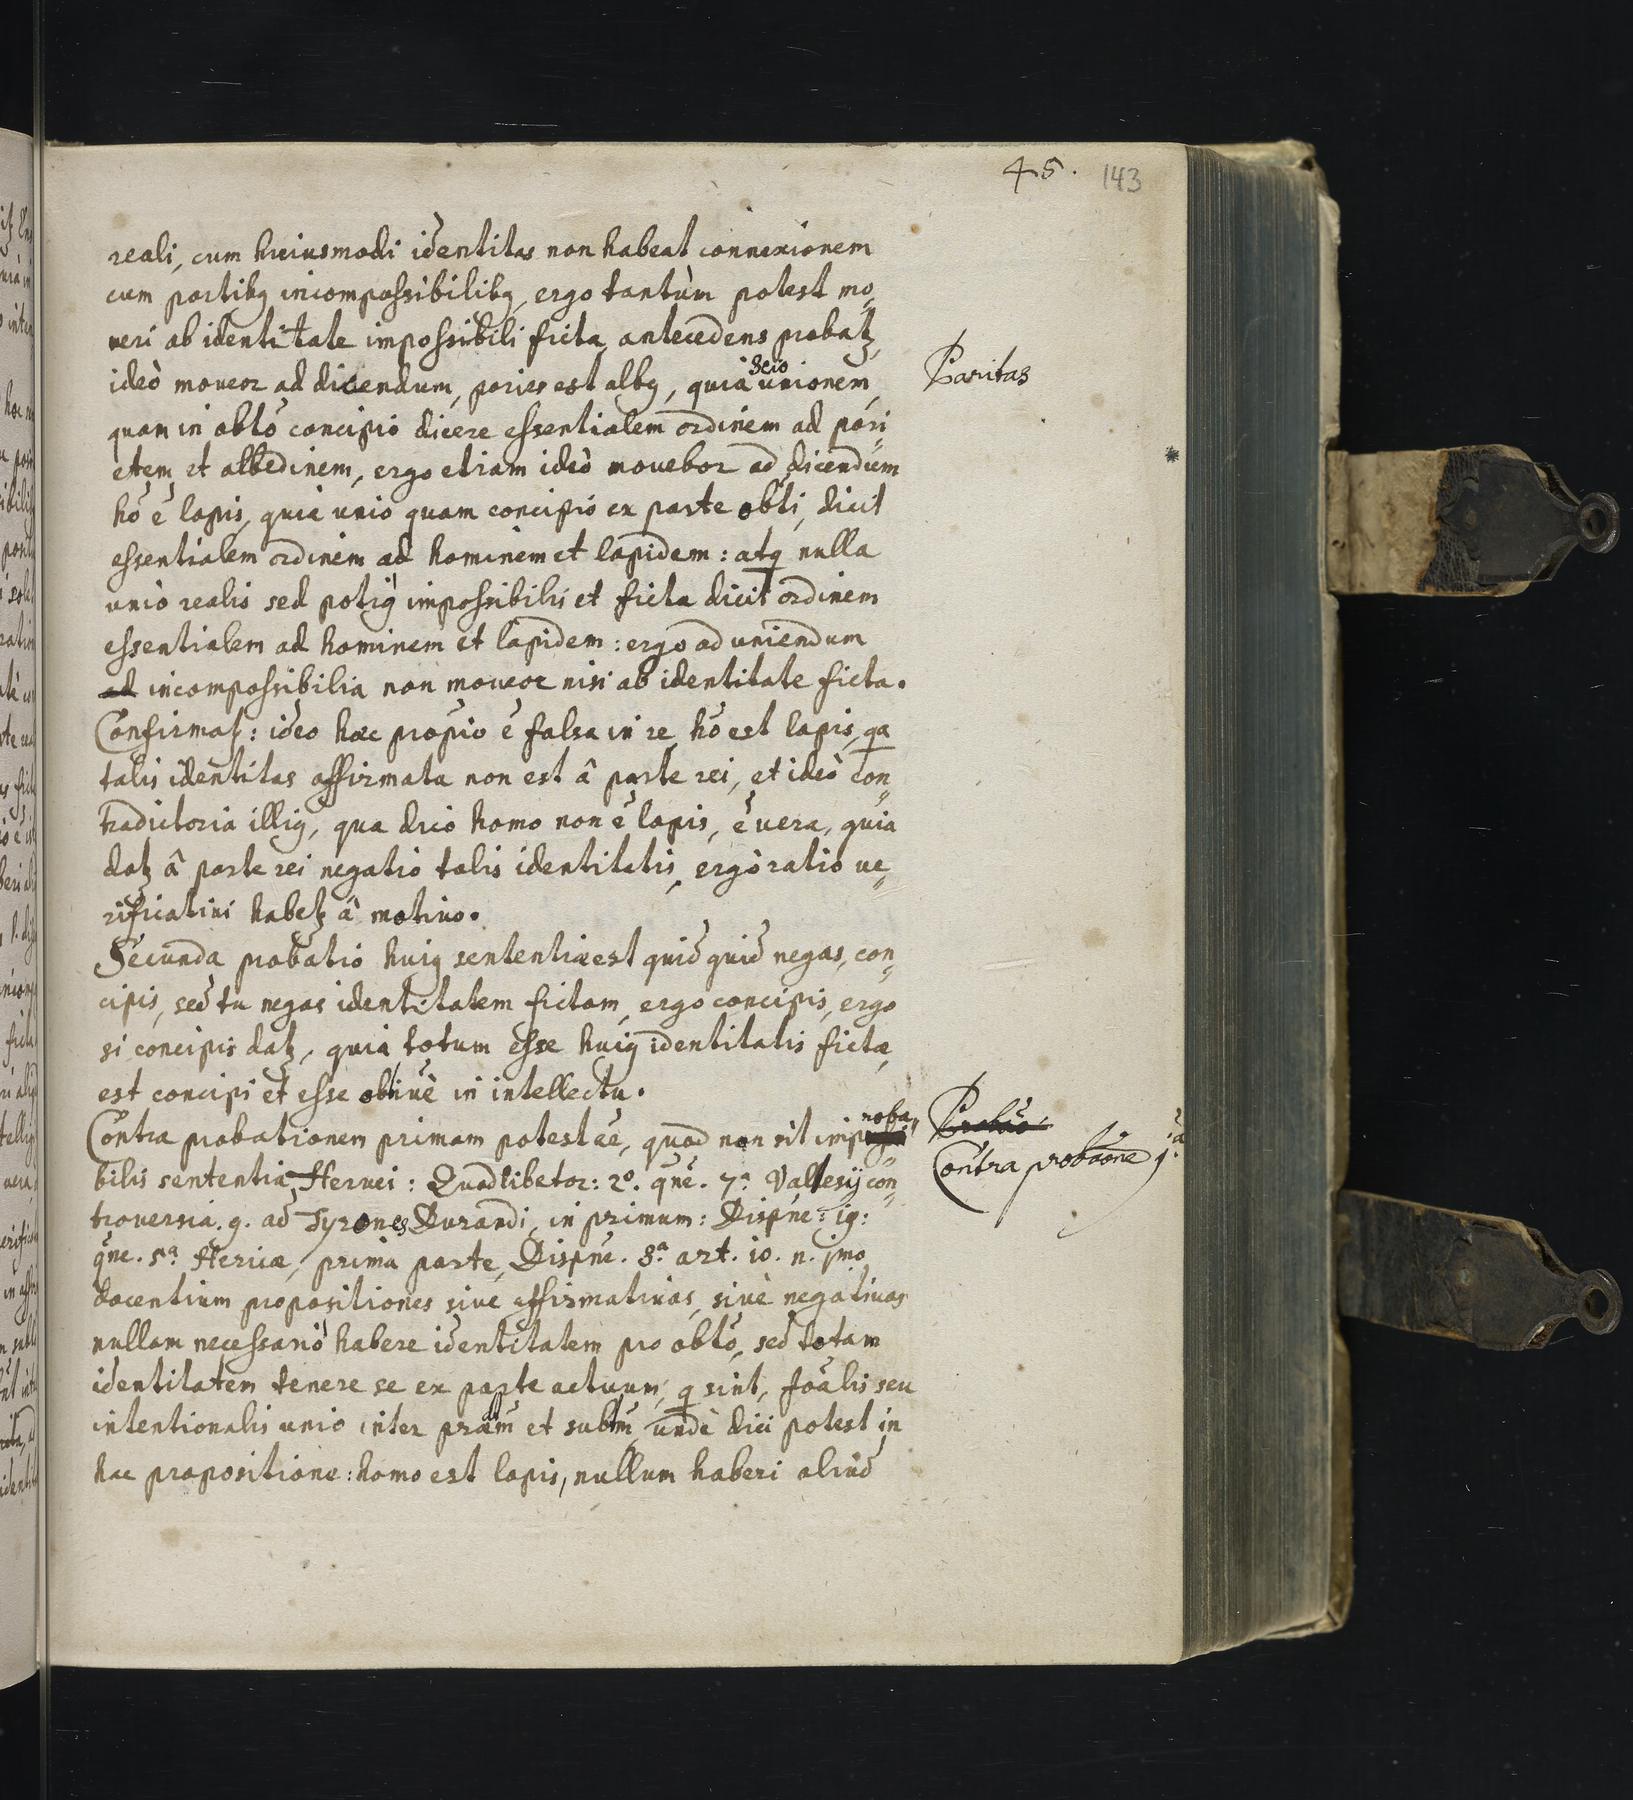 45. 143
reali, cum huiusmodi identitas non habeat connexionem
cum partibꝫ incompossibilibꝫ, ergo tantùm potest mo„
veri ab identitate impossibili ficta, antecedens probatꝫ,
ideò moveor ad dicendum, paries est albꝫ, quia scio unionem,
Paritas
quam in obto concipio dicere essentialem ordinem ad pari„
etem et albedinem, ergo etiam ideò movebor ad dicendum
hõ ẽ lapis, quia unio quam concipio ex parte obti, dicit
essentialem ordinem ad hominem et lapidem: atq nulla
unio realis sed potiꝫ impossibilis et ficta dicit ordinem
essentialem ad hominem et lapidem: ergo ad uniendum
ad incompossibilia non moveor nisi ab identitate ficta.
Confirmatꝫ: ideo haec propõio ẽ falsa in re, hõ est lapis, qa
talis identitas affirmata non est â parte rei, et ideò con„
tradictoria illiꝫ, qua dico homo non ẽ lapis, ẽ vera, quia
datꝫ â parte rei negatio talis identitatis, ergò ratio ve„
rificativi habetꝫ â motivo.
Secunda probatio huiꝫ sententiæ est quid quid negas, con„
cipis, sed tu negas identitatem fictam, ergo concipis, ergo
si concipis datꝫ, quia totum esse huiꝫ identitatis fictæ,
est concipi et esse obtivè in intellectu.
Contra probationem primam potest ẽẽ, quod non sit improba„
Contra probãone 1:ã
bilis sententia Hervei: Quodlibetor: 2º. qñe. 7ª Vallesij con„
troversia. 9. ad Tyrones Durandi, in primum: Dispñe: 19:
qñe. 5ª Hericæ, prima parte, Dispñe. 8ª art. 10. n. jmo
docentium propositiones sive affirmativas, sivè negativas
nullam necessariò habere identitatem pro obto, sed totam
identitatem tenere se ex parte actuum, q sint, foalis seu
intentionalis unio inter prãm et subtm, undè dici potest in
hac propositione: homo est lapis, nullum haberi aliud